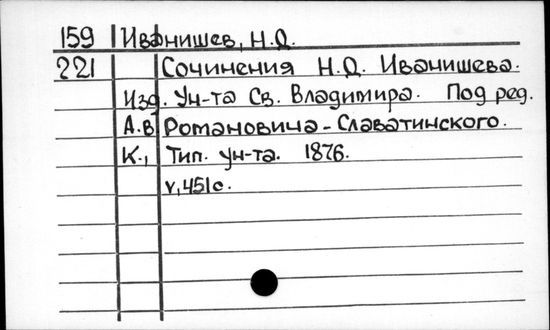 159 Иванишев, Н.Д.
221 Сочинения Н.Д. Иванишева.
Изд. Ун-та Св. Владимира. Под ред.
А.В. Романовича-Славатинского.
К., Тип. ун-та. 1876.
V, 451 с.